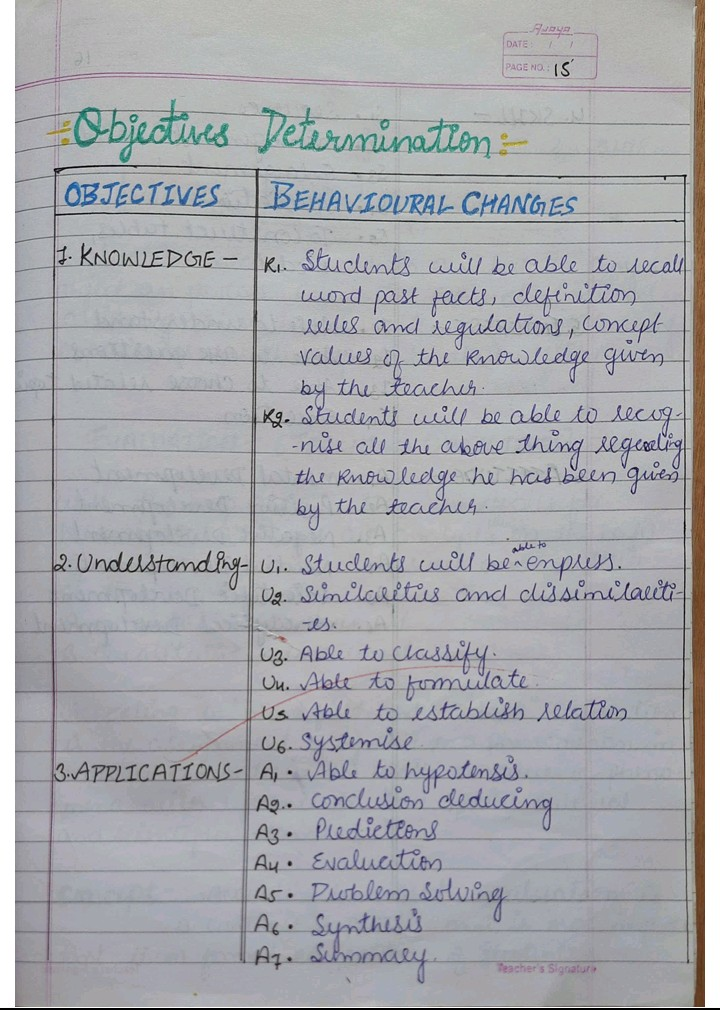 Ajaya
DATE : / /
PAGE NO. : 15
Objectives Determination :-
OBJECTIVES BEHAVIOURAL CHANGES
1. KNOWLEDGE - K1. Students will be able to recall
word past facts, definition
rules and regulations, concept
values of the knowledge given
by the teacher.
K2. Students will be able to recog-
-nise all the above thing regarding
the knowledge he has been given
by the teacher.
2. Understanding- U1. Students will be able to express.
U2. Similarities and dissimilariti-
-es.
U3. Able to classify.
U4. Able to formulate.
U5. Able to establish relation
U6. Systemise
3. APPLICATIONS- A1. Able to hypotensis.
A2. Conclusion deducing
A3. Predictions
A4. Evaluation
A5. Problem Solving
A6. Synthesis
A7. Summary.
Teacher's Signature